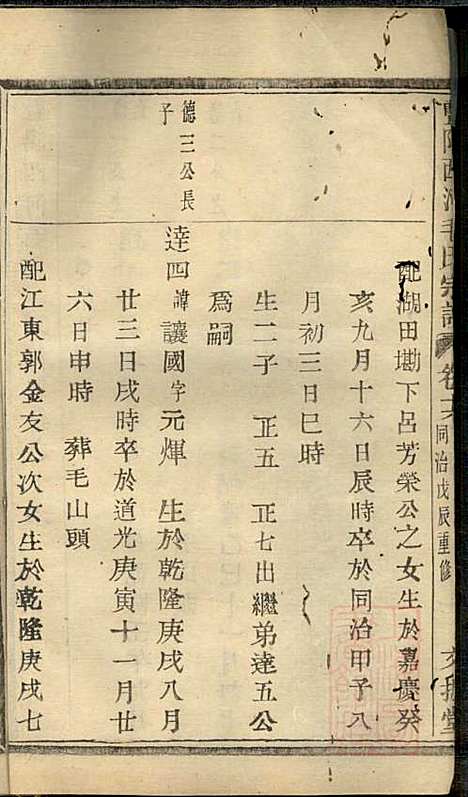 暨陽西河毛氏宗譜 卷 同治戊辰重修 堂
配湖田墈下呂芳榮公之女生於嘉慶癸
亥九月十六日辰時卒於同治甲子八
月初三日巳時
生二子 正五 正七出繼弟達五公
爲嗣
德三公長
子
逹四諱讓國字元煇 生於乾隆庚戌八月
廿三日戌時卒於道光庚寅十一月廿
六日申時 葬毛山頭
配江東郭金友公次女生於乾隆庚戌七